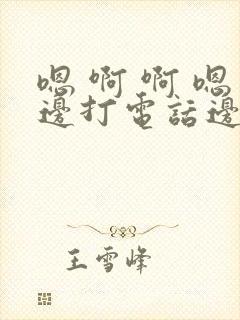 嗯啊啊嗯
邊打電話邊
王雪峰